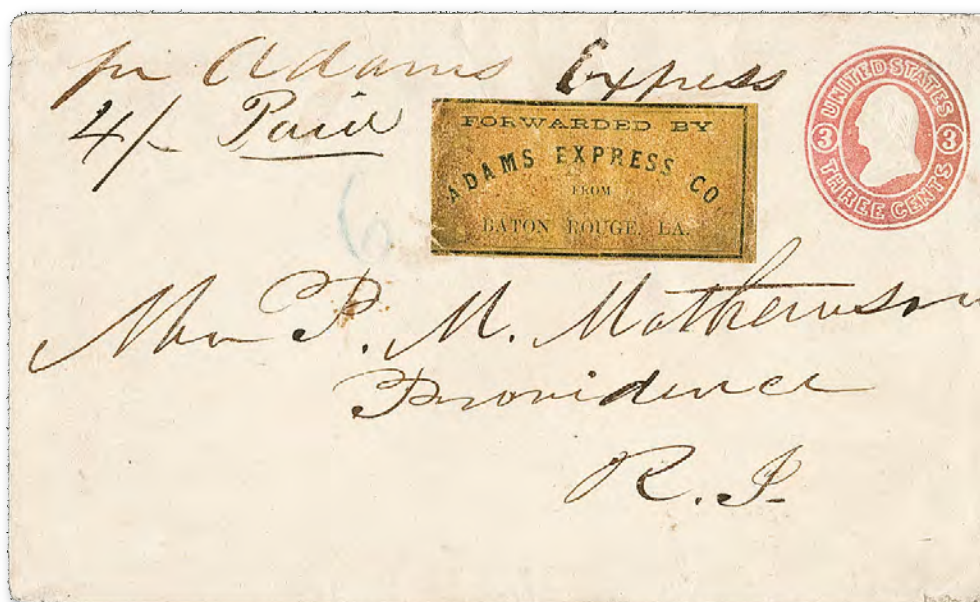 pr Adams Express
4/- Paid
FORWARDED BY
ADAMS EXPRESS CO
FROM
BATON ROUGE, LA.
UNITED STATES
3 3
THREE CENTS
6
P. M. Mathewson
Providence
R. I.